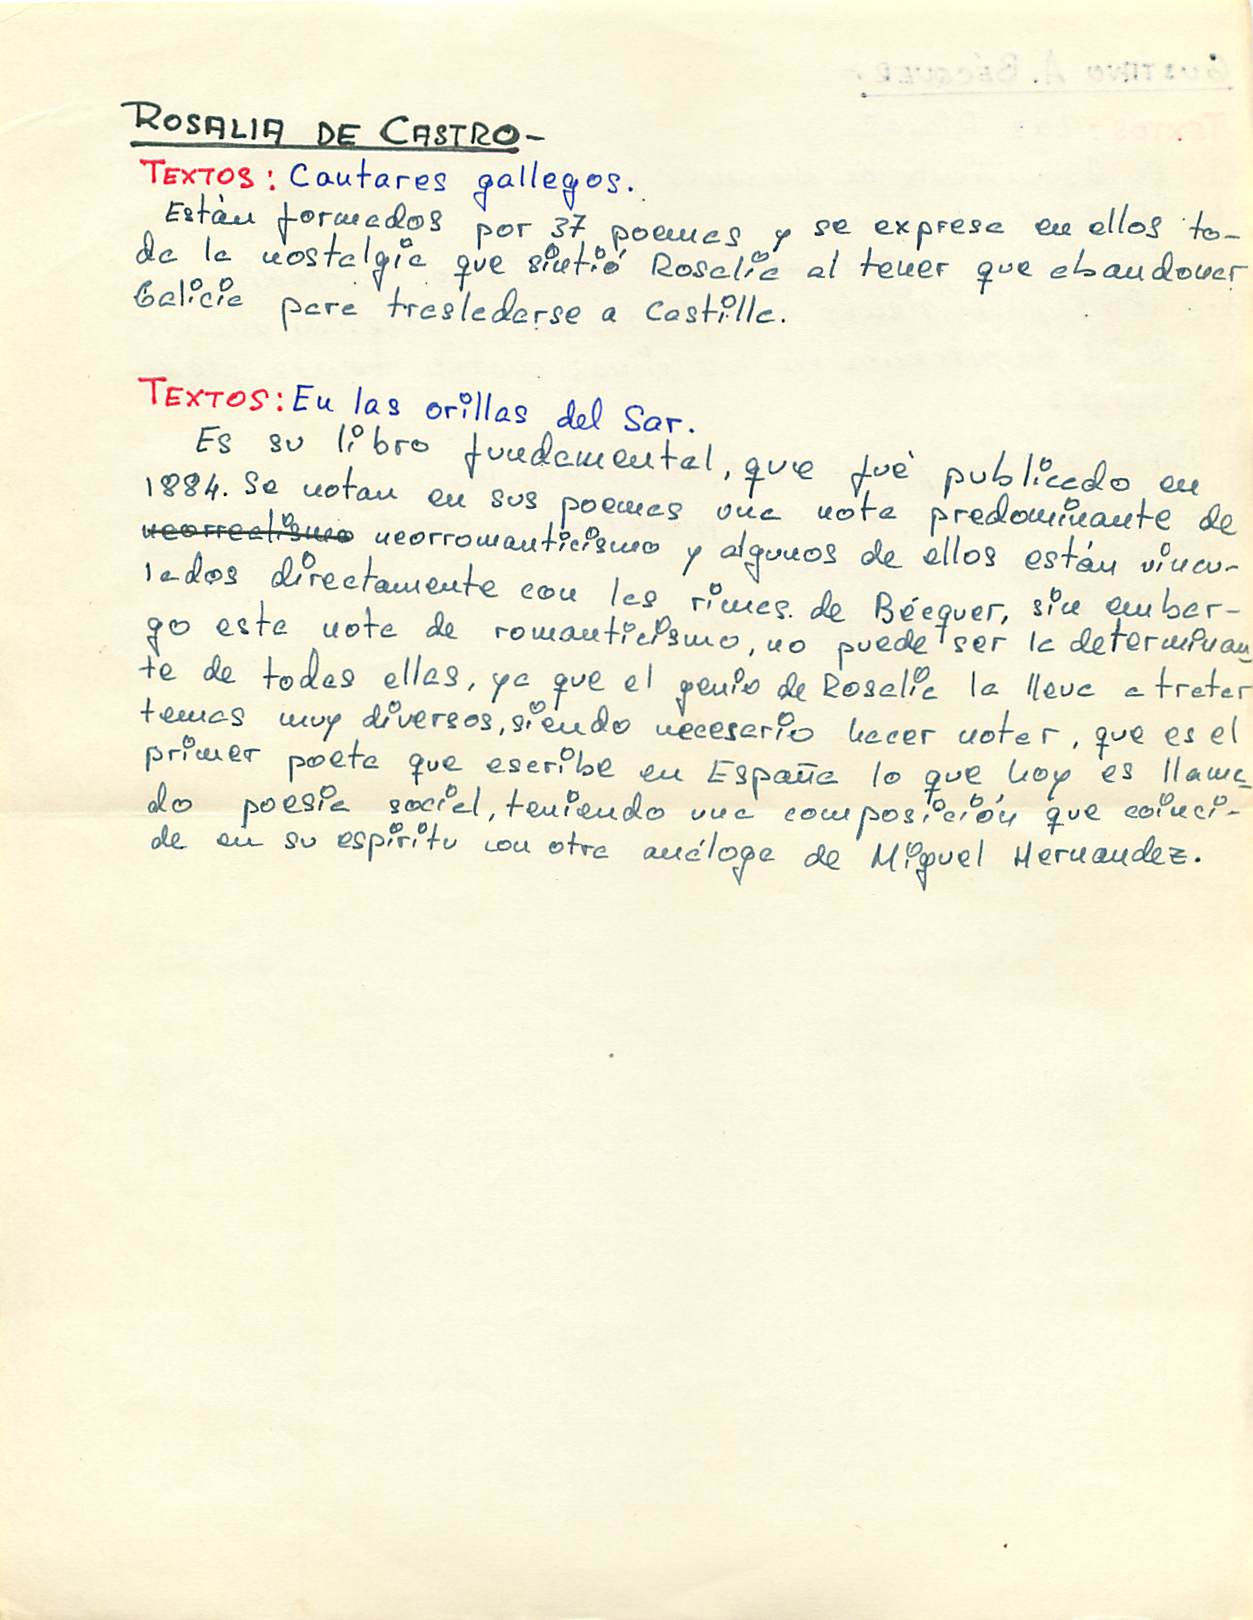 ROSALIA DE CASTRO-
TEXTOS: Cantares gallegos.
Están formados por 37 poemas y se expresa en ellos to-
da la nostalgia que sintió Rosalía al tener que abandonar
Galicia para trasladarse a Castilla.
TEXTOS: En las orillas del Sar.
Es su libro fundamental, que fué publicado en
1884. Se notan en sus poemas una nota predominante de
neorrealismo neorromanticismo y algunos de ellos están vincu-
lados directamente con las rimas de Bécquer, sin embar-
go esta nota de romanticismo, no puede ser la determinan
te de todas ellas, ya que el genio de Rosalía la lleva a tratar
temas muy diversos, siendo necesario hacer notar, que es el
primer poeta que escribe en España lo que hoy es llama
do poesía social, teniendo una composición que coinci-
de en su espíritu con otra análoga de Miguel Hernandez.